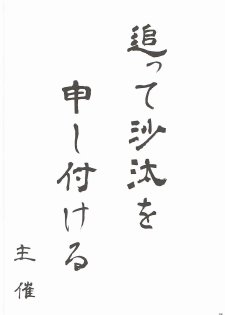 追って沙汰を
申し付ける
主催